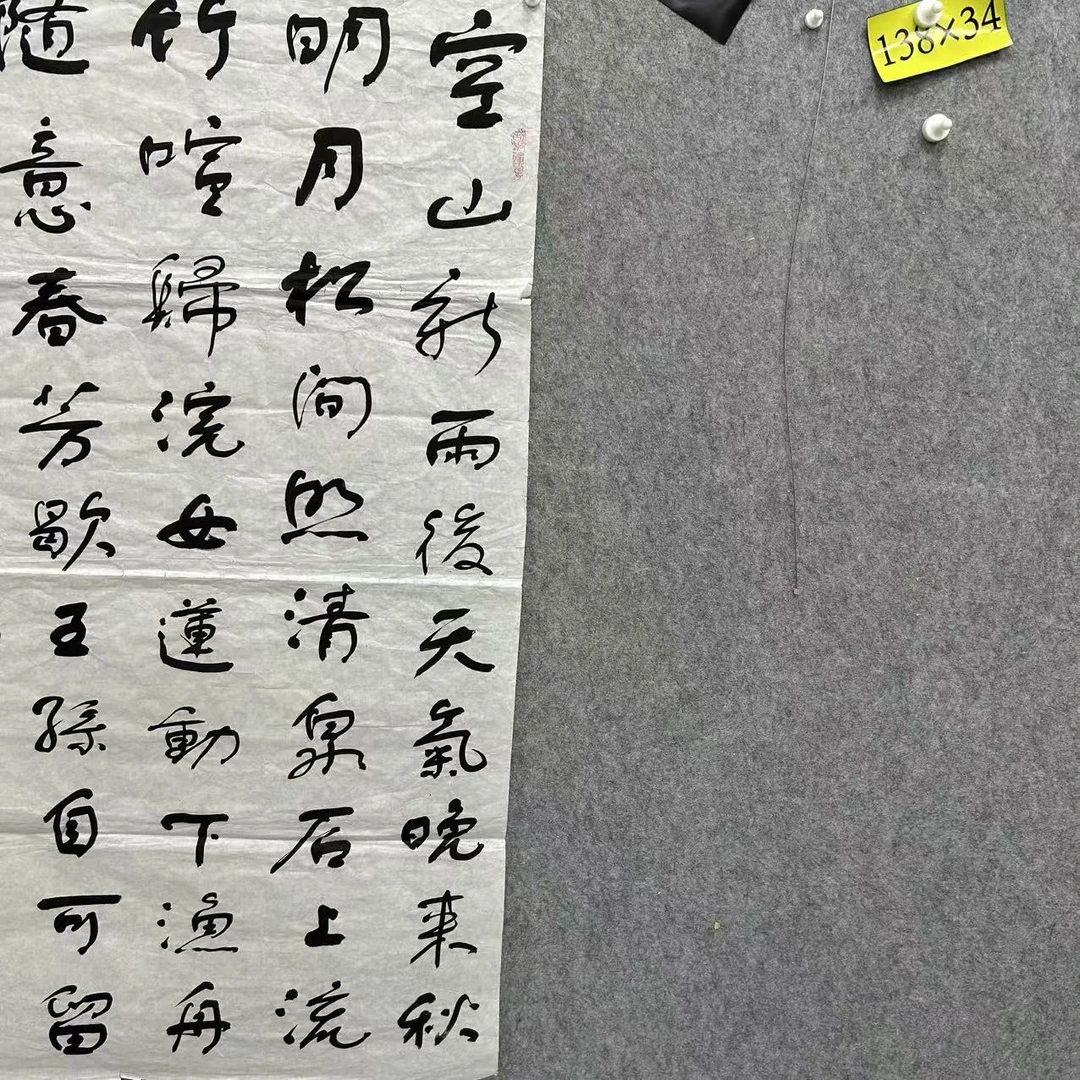 空山新雨後天氣晚来秋
明月松澗照清泉石上流
竹喧歸浣女蓮動下漁舟
随意春芳歇王孫自可留
138×34